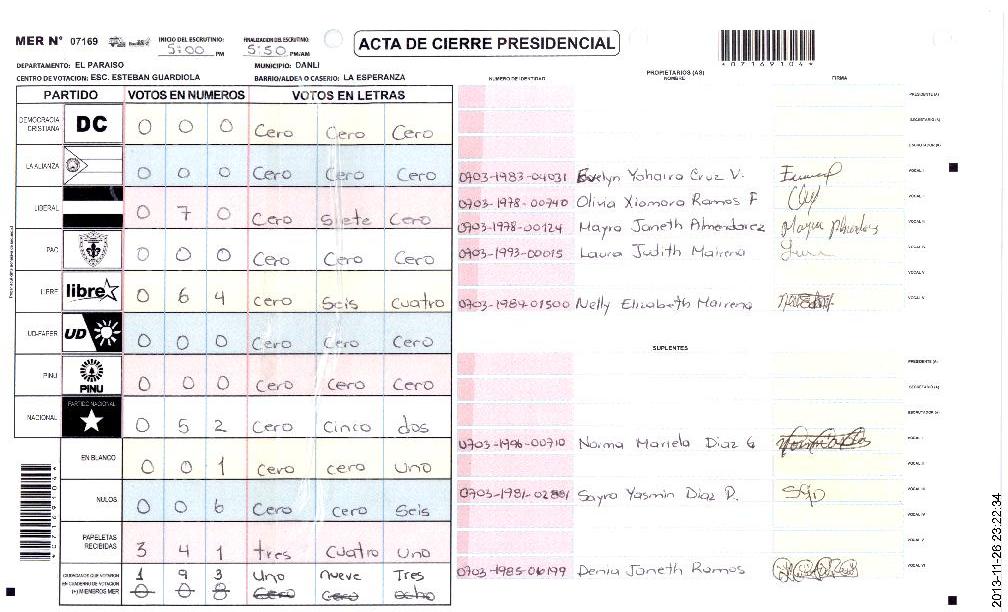 MER N° 07169 INICIO DEL ESCRUTINIO: 5:00 PM FINALIZACION DEL ESCRUTINIO: 5:50 PM/AM ACTA DE CIERRE PRESIDENCIAL
DEPARTAMENTO: EL PARAISO MUNICIPIO: DANLI
CENTRO DE VOTACION: ESC. ESTEBAN GUARDIOLA BARRIO/ALDEA O CASERIO: LA ESPERANZA
* 0 7 1 6 9 1 0 4 *
PARTIDO VOTOS EN NUMEROS VOTOS EN LETRAS
DEMOCRACIA CRISTIANA DC 0 0 0 Cero Cero Cero
LA ALIANZA 0 0 0 Cero Cero Cero
LIBERAL 0 7 0 Cero Siete Cero
PAC 0 0 0 Cero Cero Cero
LIBRE libre 0 6 4 cero Seis cuatro
UD-FAPER UD 0 0 0 Cero Cero Cero
PINU PINU 0 0 0 Cero Cero Cero
NACIONAL PARTIDO NACIONAL 0 5 2 Cero Cinco dos
EN BLANCO 0 0 1 Cero cero Uno
NULOS 0 0 6 Cero cero Seis
PAPELETAS RECIBIDAS 3 4 1 tres Cuatro uno
CIUDADANOS QUE VOTARON EN CUADERNO DE VOTACION 1 9 3 Uno nueve Tres
(+) MIEMBROS MER 0 0 8 Cero Cero ocho
* 0 7 1 6 9 1 0 4 *
NUMERO DE IDENTIDAD PROPIETARIOS (AS) NOMBRE FIRMA
PRESIDENTE (A)
SECRETARIO (A)
ESCRUTADOR (A)
0703-1983-04031 Evelyn Yohaira Cruz V. VOCAL I
0703-1978-00740 Olivia Xiomora Ramos F VOCAL II
0703-1978-00124 Mayra Janeth Almendarez VOCAL III
0703-1993-00015 Laura Judith Mairena VOCAL IV
VOCAL V
0703-1984-01500 Nelly Elizabeth Mairena VOCAL VI
SUPLENTES
PRESIDENTE (A)
SECRETARIO (A)
ESCRUTADOR (A)
0703-1996-00710 Norma Mariela Diaz G VOCAL I
VOCAL II
0703-1981-02881 Sayra Yasmin Diaz P. VOCAL III
VOCAL IV
VOCAL V
0703-1985-06199 Denia Janeth Ramos VOCAL VI
2013-11-26 23:22:34